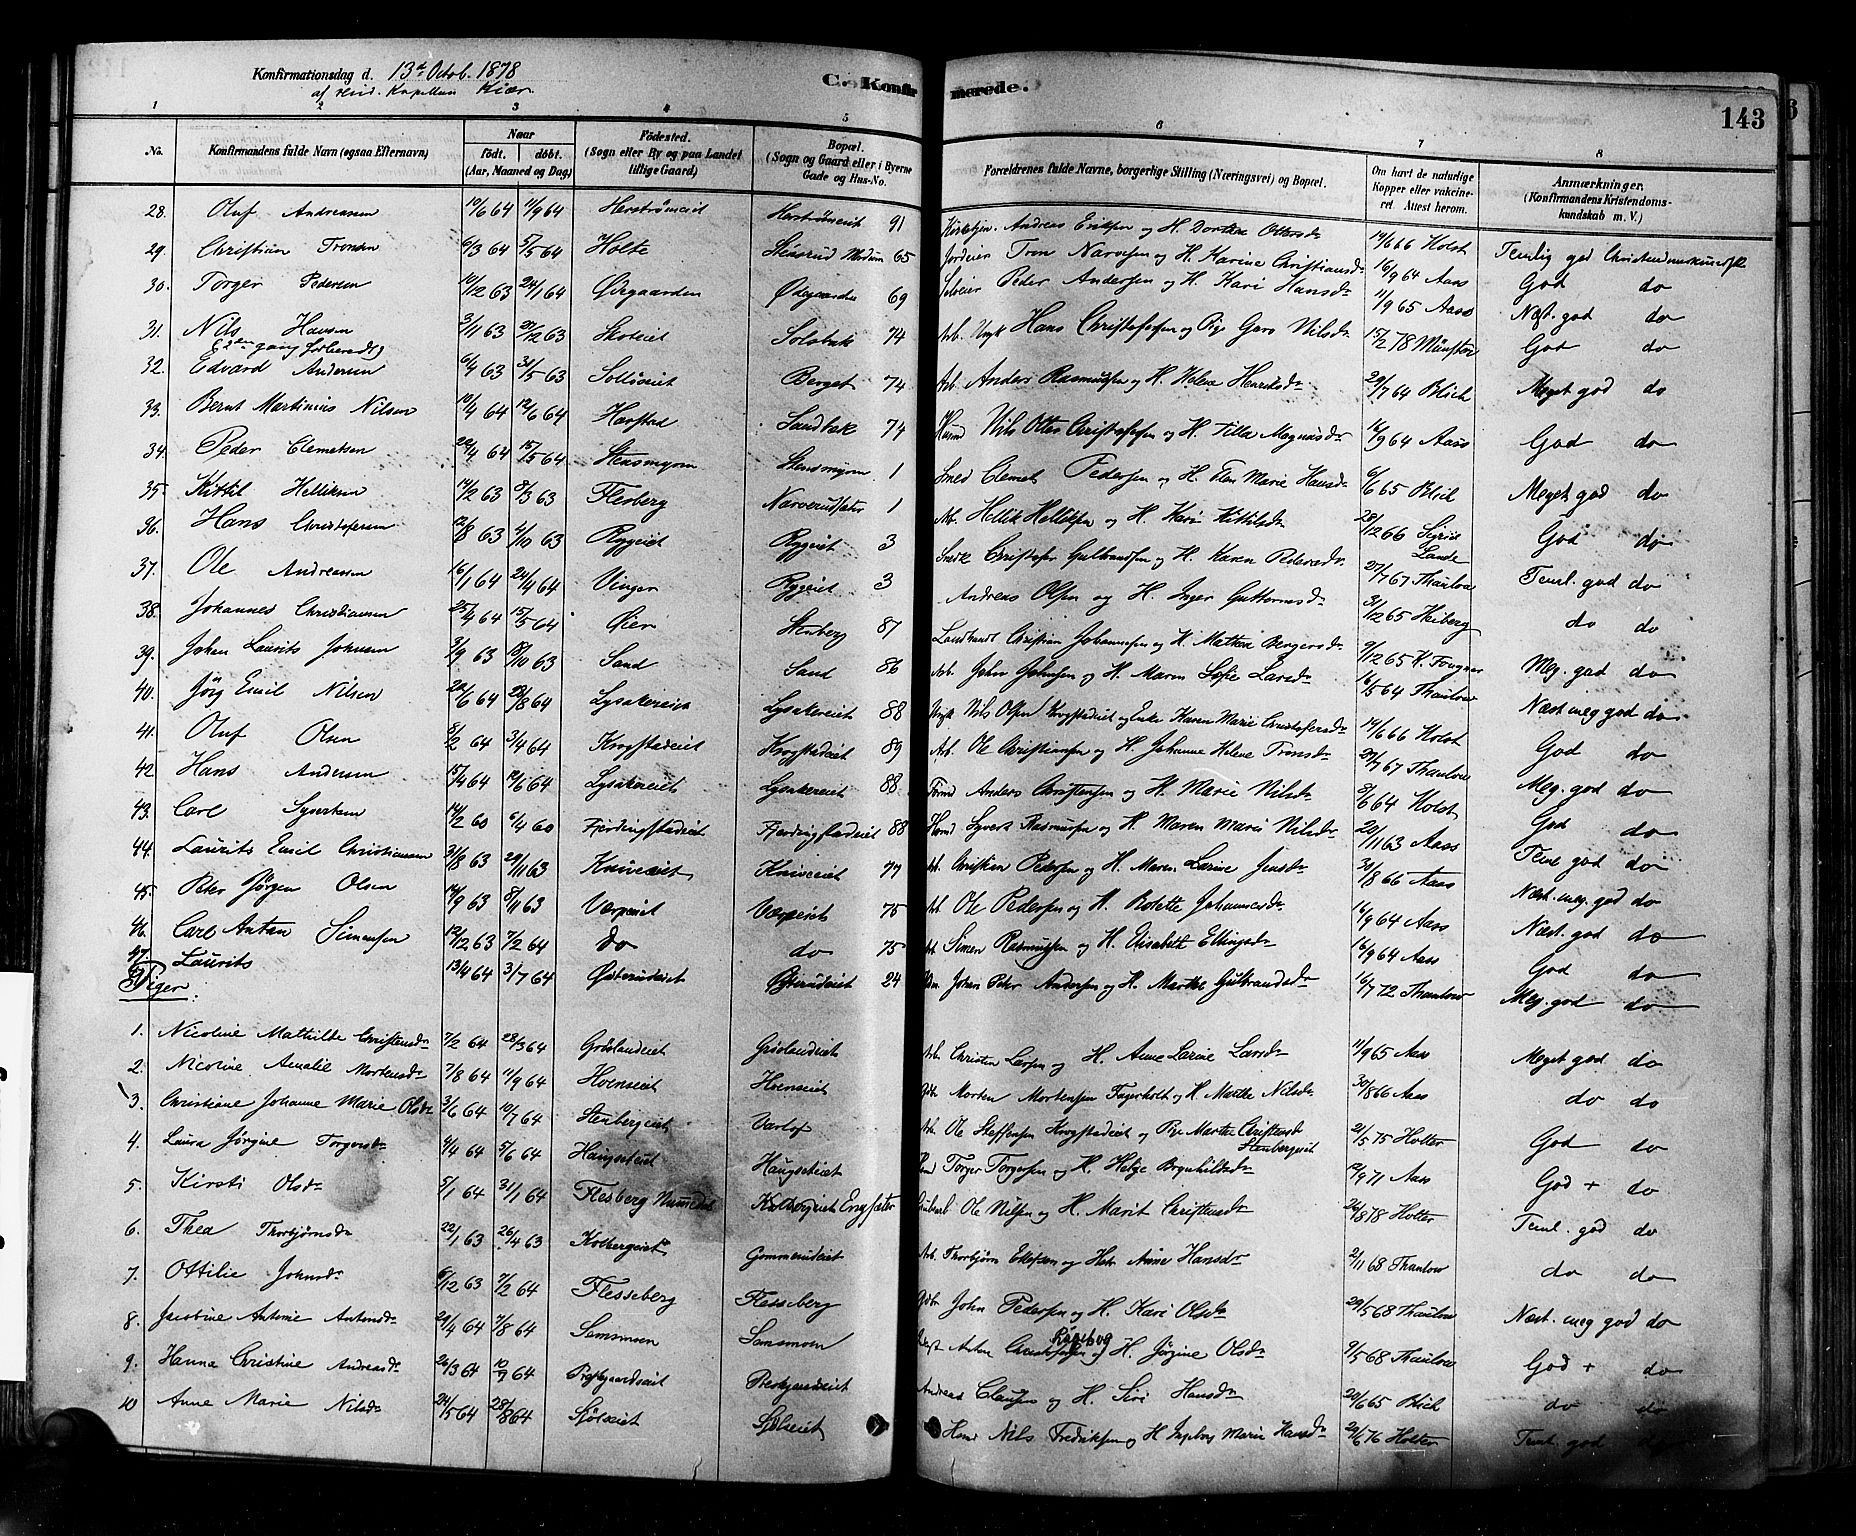 Konfirmationsdag d. 13de Octob. 1878
af resid. Kapellan Kiær.
C. Konfirmerede.
143
1 2 3 4 5 6 7 8
No. Konfirmandens fulde Navn (ogsaa Efternavn) Naar födt. döbt. (Aar, Maaned og Dag) Födested. (Sogn eller By og paa Landet tillige Gaard) Bopæl. (Sogn og Gaard eller i Byerne Gade og Hus-No. Forældrenes fulde Navne, borgerlige Stilling (Næringsvei) og Bopæl. Om havt de naturlige Kopper eller vakcineret. Attest herom. Anmærkninger. (Konfirmandens Kristendomskundskab m. V.)
28. Oluf Andreassen 10/6 64 11/9 64 Herstrømeiet Herstrømeiet 91 Andreas Eriksen og H. Dorthea Ottersdr 14/6 66 Holst Temlig god Christendomskundsk
29. Christian Tronsen 6/3 64 5/5 64 Holte Stensrud Modum 65 Jordeier Tron Narvesen og H. Karine Christiansdr 16/9 64 Aass God do
30. Torger Pedersen 10/12 63 24/1 64 Ødegaarden Ødegaarden 69 Selveier Peder Andersen og H. Kari Hansdr 11/9 65 Aass Næst. god do
31. Nils Hansen 3/11 63 21/12 63 Skoteiet Solobak 74 Arb. Ungk Hans Christofersen og Pige Guro Nilsdr 15/2 78 Münster God do
(2den gang forberedt)
32. Edvard Andersen 6/4 63 31/5 63 Solløseiet Berget 74 Arb. Anders Rasmussen og H. Helene Henriksdr 29/7 64 Blich Meget god do
33. Bernt Martinius Nilsen 10/4 64 12/6 64 Harstad Sandbæk 74 Husmd Nils Otter Christofersen og H. Tilla Magnusdr 16/9 64 Aass God do
34. Peder Clemetsen 20/4 64 15/5 64 Stensmyren Stensmyren 1 Smed Clemet Pedersen og H. Elen Marie Hansdr 6/6 65 Blich Meget god do
35. Kittil Helliksen 14/2 63 8/3 63 Flesberg Narverudsæter 1 Arb. Hellik Helliksen og H. Kari Kittilsdr 28/12 66 Sigrid Lande God do
36. Hans Christofersen 12/8 63 4/10 63 Rygeiet Rygeiet 3 Christofer Gulbrandsen og H. Karen Pedersdr 27/7 67 Thaulow Teml. god do
37. Ole Andreassen 16/1 64 24/4 64 Vinger Rygeiet 3 Andreas Olsen og H. Inger Guttormsdr 31/12 65 Heiberg do do
38. Johannes Christiansen 25/4 64 15/5 64 Øier Stenberg 87 Landhandl Christian Johannesen og H. Mathea Bergersdr 9/12 65 K. Fougner Meg. god do
39. Johan Laurits Johnsen 3/9 63 18/10 63 Sand Sand 86 Arb. John Johnsen og H. Maren Sofie Larsdr 16/5 64 Thaulow Næst meg god do
40. Jörg Emil Nilsen 20/6 64 28/8 64 Lysakereiet Lysakereiet 88 Ungk Nils Olsen Krogstadeiet og Enke Karen Marie Christofersdr 14/6 66 Holst God do
41. Oluf Olsen 8/2 64 3/4 64 Krogstadeiet Krogstadeiet 89 Arb. Ole Christiansen og H. Johanne Helene Tronsdr 29/7 67 Thaulow Meg. god do
42 Hans Andersen 15/4 64 12/6 64 Lysakereiet Lysakereiet 88 Anders Christensen og H. Marie Nilsdr 5/6 64 Holst God do
43. Carl Syvertsen 14/2 60 6/4 60 Fjerdingstadeiet Fjerdingstadeiet 88 Husmd Syvert Rasmussen og H. Maren Marie Nilsdr 20/11 63 Aass Teml god do
44. Laurits Emil Christiansen 31/8 63 29/11 63 Kniveeiet Kniveeiet 77 Arb. Christian Pedersen og H. Maren Larine Jensdr 30/8 66 Aass Næst. meg. god do
45. Peter Jörgen Olsen 14/9 63 8/11 63 Værpeiet Værpeiet 75 Arb Ole Pedersen og H. Rolette Johannesdr 16/9 64 Aass Næst. god do
46. Carl Anton Simensen 12/12 63 7/2 64 do do 75 Arb Simen Rasmussen og H. Elisabeth Ellingsdr 16/9 64 Aass God do
47. Laurits 13/4 64 3/7 64 Østerudeiet Østerudeiet 24 Johan Peter Andersen og H. Marthe Gulbrandsdr 16/7 72 Thaulow Meg. god do
Piger:
1. Nicoline Mathilde Christensdr 7/2 64 28/3 64 Grøslandeiet Grøslandeiet Arb. Christen Larsen og H. Anne Larine Larsdr 11/9 65 Aass Meget god do
2. Nicoline Amalie Mortensdr 7/8 64 11/9 64 Hoenseiet Hoenseiet Gdbr Morten Mortensen Fagerholt og H. Marthe Nilsdr 30/8 66 Aass do do
3. Christiane Johanne Marie Olsdr 3/6 64 10/7 64 Stenbergeiet Varlo Arb. Ole Steffensen Krogstadeiet og Pige Marthe Christensdr Stenbergeiet 21/5 75 Holter God do
4. Laura Jörgine Torgersdr 4/4 64 5/6 64 Haugseiet Haugseiet Torger Torgersen og H. Helge Brynhildsdr 12/9 71 Aass God + do
5. Kirsti Olsdr 5/1 64 31/1 64 Flesberg Numedal Kolbergeiet Engsæter Ole Nilsen og H. Marit Christensdr 26/8 78 Holter Teml. god do
6. Thea Thorbjörnsdr 22/1 63 26/4 63 Kolbergeiet Gommerudeiet Arb. Thorbjörn Ellefsen og Anne Hansdr 2/11 68 Thaulow do do
7. Ottilie Johnsdr 6/12 63 7/2 64 Flesseberg Flesseberg Gdbr John Pedersen og H. Kari Olsdr 29/5 68 Thaulow Næst. meg god do
8. Jacobine Antonie Antonsdr 29/4 64 7/8 64 Semsmoen Semsmoen Anton Christofersen Kopsbog og H. Jörgine Olsdr 9/5 68 Thaulow God + do
9. Hanna Christine Andreasdr 26/3 64 10/9 64 Præstgaardseiet Prestgaardseiet Andreas Clausen og H. Siri Hansdr 20/6 65 Blich do do
10 Anne Marie Nilsdr 24/5 64 28/8 64 Sjölseiet Sjölseiet Husmd Nils Fredriksen og H Ingeborg Marie Hansdr 29/6 76 Holter Teml. god